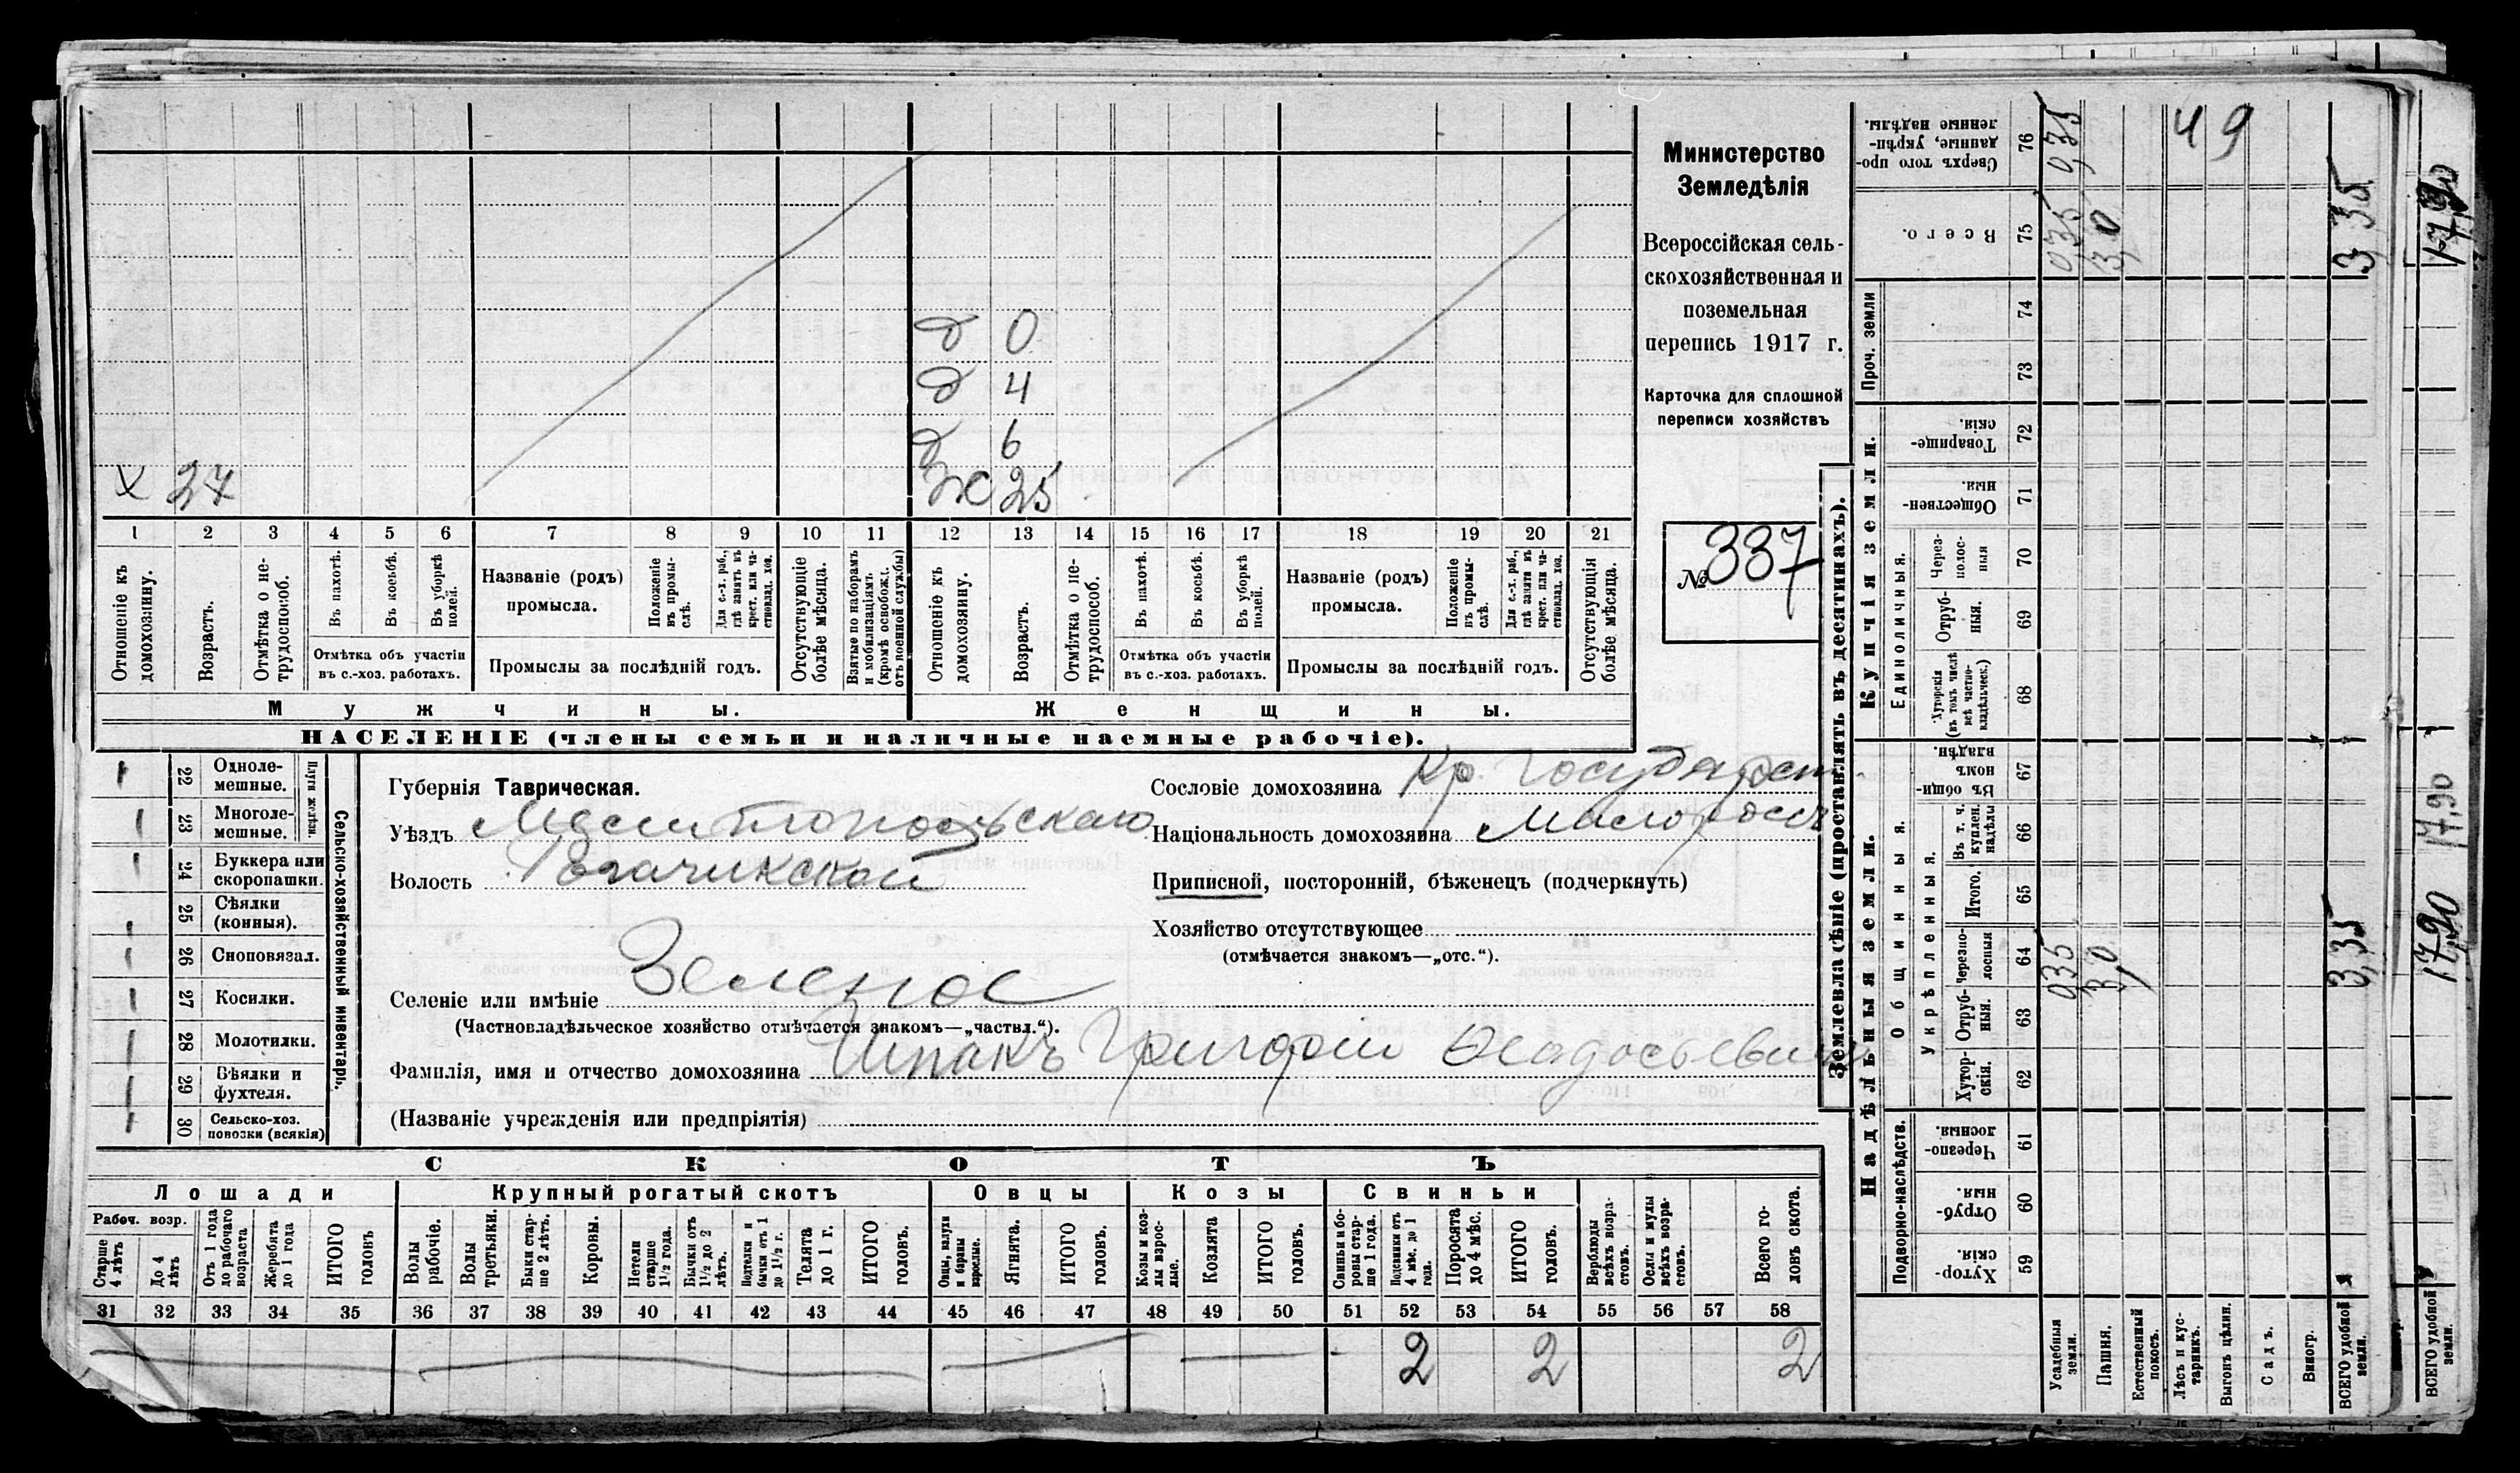 д 0
д 4
д 6
х 27
ж 25
1 2 3 4 5 6 7 8 9 10 11 12 13 14 15 16 17 18 19 20 21
Отношеніе къ домохозяину.
Возрастъ.
Отмѣтка о не-трудоспособ.
Въ пахотѣ.
Въ косьбѣ.
Въ уборкѣ полей.
Отмѣтка объ участіи
въ с.-хоз. работахъ.
Названіе (родъ)
промысла.
Положеніе въ промы-слѣ.
Для с.-х. раб., гдѣ занятъ въ крест. или ча-стновлад. хоз.
Промыслы за послѣдній годъ.
Отсутствующіе болѣе мѣсяца.
Взятые по наборамъ и мобилизаціямъ (кромѣ освобож. отъ военной службы)
Отношеніе къ домохозяину.
Возрастъ.
Отмѣтка о не-трудоспособ.
Въ пахотѣ.
Въ косьбѣ.
Въ уборкѣ полей.
Отмѣтка объ участіи
въ с.-хоз. работахъ.
Названіе (родъ)
промысла.
Положеніе въ промы-слѣ.
Для с.-х. раб., гдѣ заняты въ крест. или ча-стновлад. хоз.
Промыслы за послѣдній годъ.
Отсутствующія болѣе мѣсяца.
Мужчины.
Женщины.
НАСЕЛЕНІЕ (члены семьи и наличные наемные рабочіе).
Министерство
Земледѣлія
Всероссійская сель-
скохозяйственная и
поземельная
перепись 1917 г.
Карточка для сплошной
переписи хозяйствъ
№ 337
22 Одноле-мешные.
23 Многоле-мешные.
Плуги желѣзн.
24 Буккера или скоропашки.
25 Сѣялки (конныя).
26 Сноповязал.
27 Косилки.
28 Молотилки.
29 Вѣялки и фухтеля.
30 Сельско-хоз. повозки (всякія)
Сельско-хозяйственный инвентарь.
Губернія Таврическая.
Уѣздъ Мелитопольскаго
Волость Рогачикской
Селеніе или имѣніе Зеленое
(Частновладѣльческое хозяйство отмѣчается знакомъ—„частвл.“).
Фамилія, имя и отчество домохозяина Шпакъ Григорій Феодосьевич
(Названіе учрежденія или предпріятія)
Сословіе домохозяина Кр. Государст
Національность домохозяина Малоросс
Приписной, посторонній, бѣженецъ (подчеркнуть)
Хозяйство отсутствующее
(отмѣчается знакомъ—„отс.“).
СКОТЪ
Лошади
Крупный рогатый скотъ
Овцы
Козы
Свиньи
Рабоч. возр.
Старше 4 лѣтъ
До 4 лѣтъ
Отъ 1 года до рабочаго возраста
Жеребята до 1 года
ИТОГО головъ
Волы рабочіе.
Волы третьяки.
Быки стар-ше 2 лѣтъ.
Коровы.
Нетели старше 1½ года.
Бычки отъ 1½ до 2 лѣтъ.
Подтелки и бычки отъ 1 до 1½ г.
Телята до 1 г.
ИТОГО головъ.
Овцы, валухи и бараны взрослые.
Ягнята.
ИТОГО головъ.
Козы и коз-лы взрос-лые.
Козлята
ИТОГО головъ.
Свиньи и бо-ровы стар-ше 1 года.
Подсвинки отъ 4 мѣс. до 1 года.
Поросята до 4 мѣс.
ИТОГО головъ.
Верблюды всѣхъ возра-стовъ.
Ослы и мулы всѣхъ возра-стовъ.
Всего го-ловъ скота.
31 32 33 34 35 36 37 38 39 40 41 42 43 44 45 46 47 48 49 50 51 52 53 54 55 56 57 58
2 2 2
Землевладѣніе (проставлять въ десятинахъ).
Надѣльныя земли.
Купчія земли.
Проч. земли
Подворно-наслѣдств.
Общинныя.
Укрѣпленныя.
Единоличныя.
Сверхъ того про-данные, укрѣп-ленные надѣлы. 76
Всего. 75
74
73
Товарище-скія. 72
Обществен-ныя. 71
Через-полос-ныя 70
Отруб-ныя. 69
Хуторскія (въ томъ числѣ всѣ частно-владѣльческ.) 68
Въ общи-номъ владѣн. 67
Въ т. ч. куплен. надѣлы 66
Итого. 65
Черезпо-лосныя 64
Отруб-ныя. 63
Хутор-скія. 62
Черезпо-лосныя. 61
Отруб-ныя 60
Хутор-скія 59
Усадебныя земли.
Пашня.
Естественный покосъ.
Лѣсъ и кус-тарникъ.
Выгонъ цѣлин.
Садъ.
Виногр.
ВСЕГО удобной земли.
ВСЕГО удобной земли.
0,35
0,35
3,0
49
3,35
17,90
035
3,0
3,35
17,90
17,90